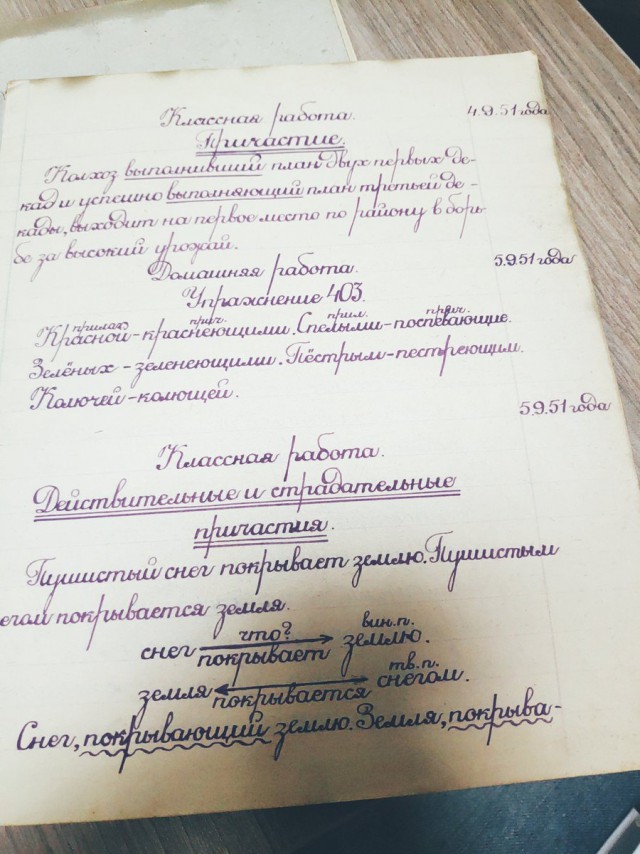 Классная работа. 4.9.51 года
Причастие.
Колхоз выполнивший план двух первых де-
кад и успешно выполняющий план третьей де-
кады, выходит на первое место по району в борь-
бе за высокий урожай.
Домашняя работа. 5.9.51 года
Упражнение 403.
прилаг. прич. прил. прич.
Красной-краснеющими. Спелыми-поспевающие.
Зелёных-зеленеющими. Пёстрым-пестреющим.
Колючей-колющей.
5.9.51 года
Классная работа.
Действительные и страдательные
причастия.
Пушистый снег покрывает землю. Пушистым
егом покрывается земля.
что? вин.п.
снег землю.
покрывает
тв.п.
земля снегом.
покрывается
Снег, покрывающий землю. Земля, покрыва-